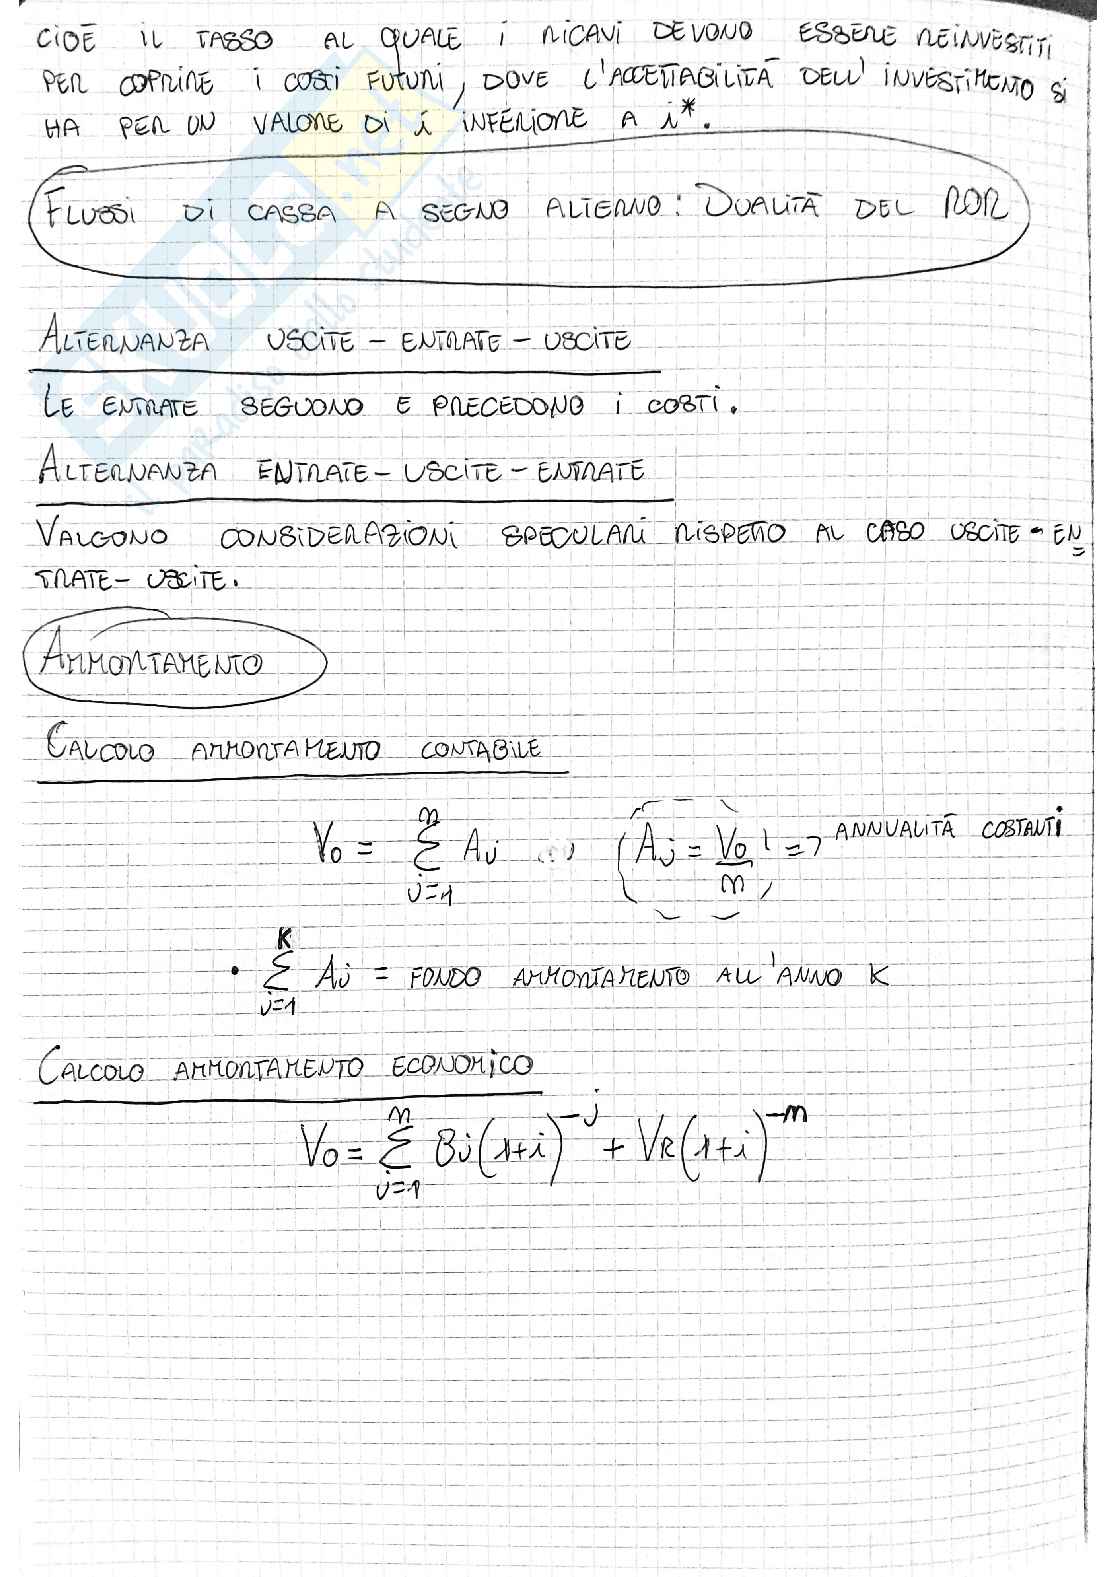 CIOÈ IL TASSO AL QUALE I RICAVI DEVONO ESSERE REINVESTITI
PER COPRIRE I COSTI FUTURI, DOVE L'ACCETTABILITÀ DELL'INVESTIMENTO SI
HA PER UN VALORE DI i INFERIORE A i*.
FLUSSI DI CASSA A SEGNO ALTERNO: DUALITÀ DEL ROR
ALTERNANZA USCITE - ENTRATE - USCITE
LE ENTRATE SEGUONO E PRECEDONO I COSTI.
ALTERNANZA ENTRATE - USCITE - ENTRATE
VALGONO CONSIDERAZIONI SPECULARI RISPETTO AL CASO USCITE - EN=
TRATE - USCITE.
AMMORTAMENTO
CALCOLO AMMORTAMENTO CONTABILE
V0 = n Σ j=1 Aj , (Aj = V0/n) => ANNUALITÀ COSTANTI
• K Σ j=1 Aj = FONDO AMMORTAMENTO ALL'ANNO K
CALCOLO AMMORTAMENTO ECONOMICO
V0 = n Σ j=1 Bj(1+i)^-j + VR(1+i)^-n